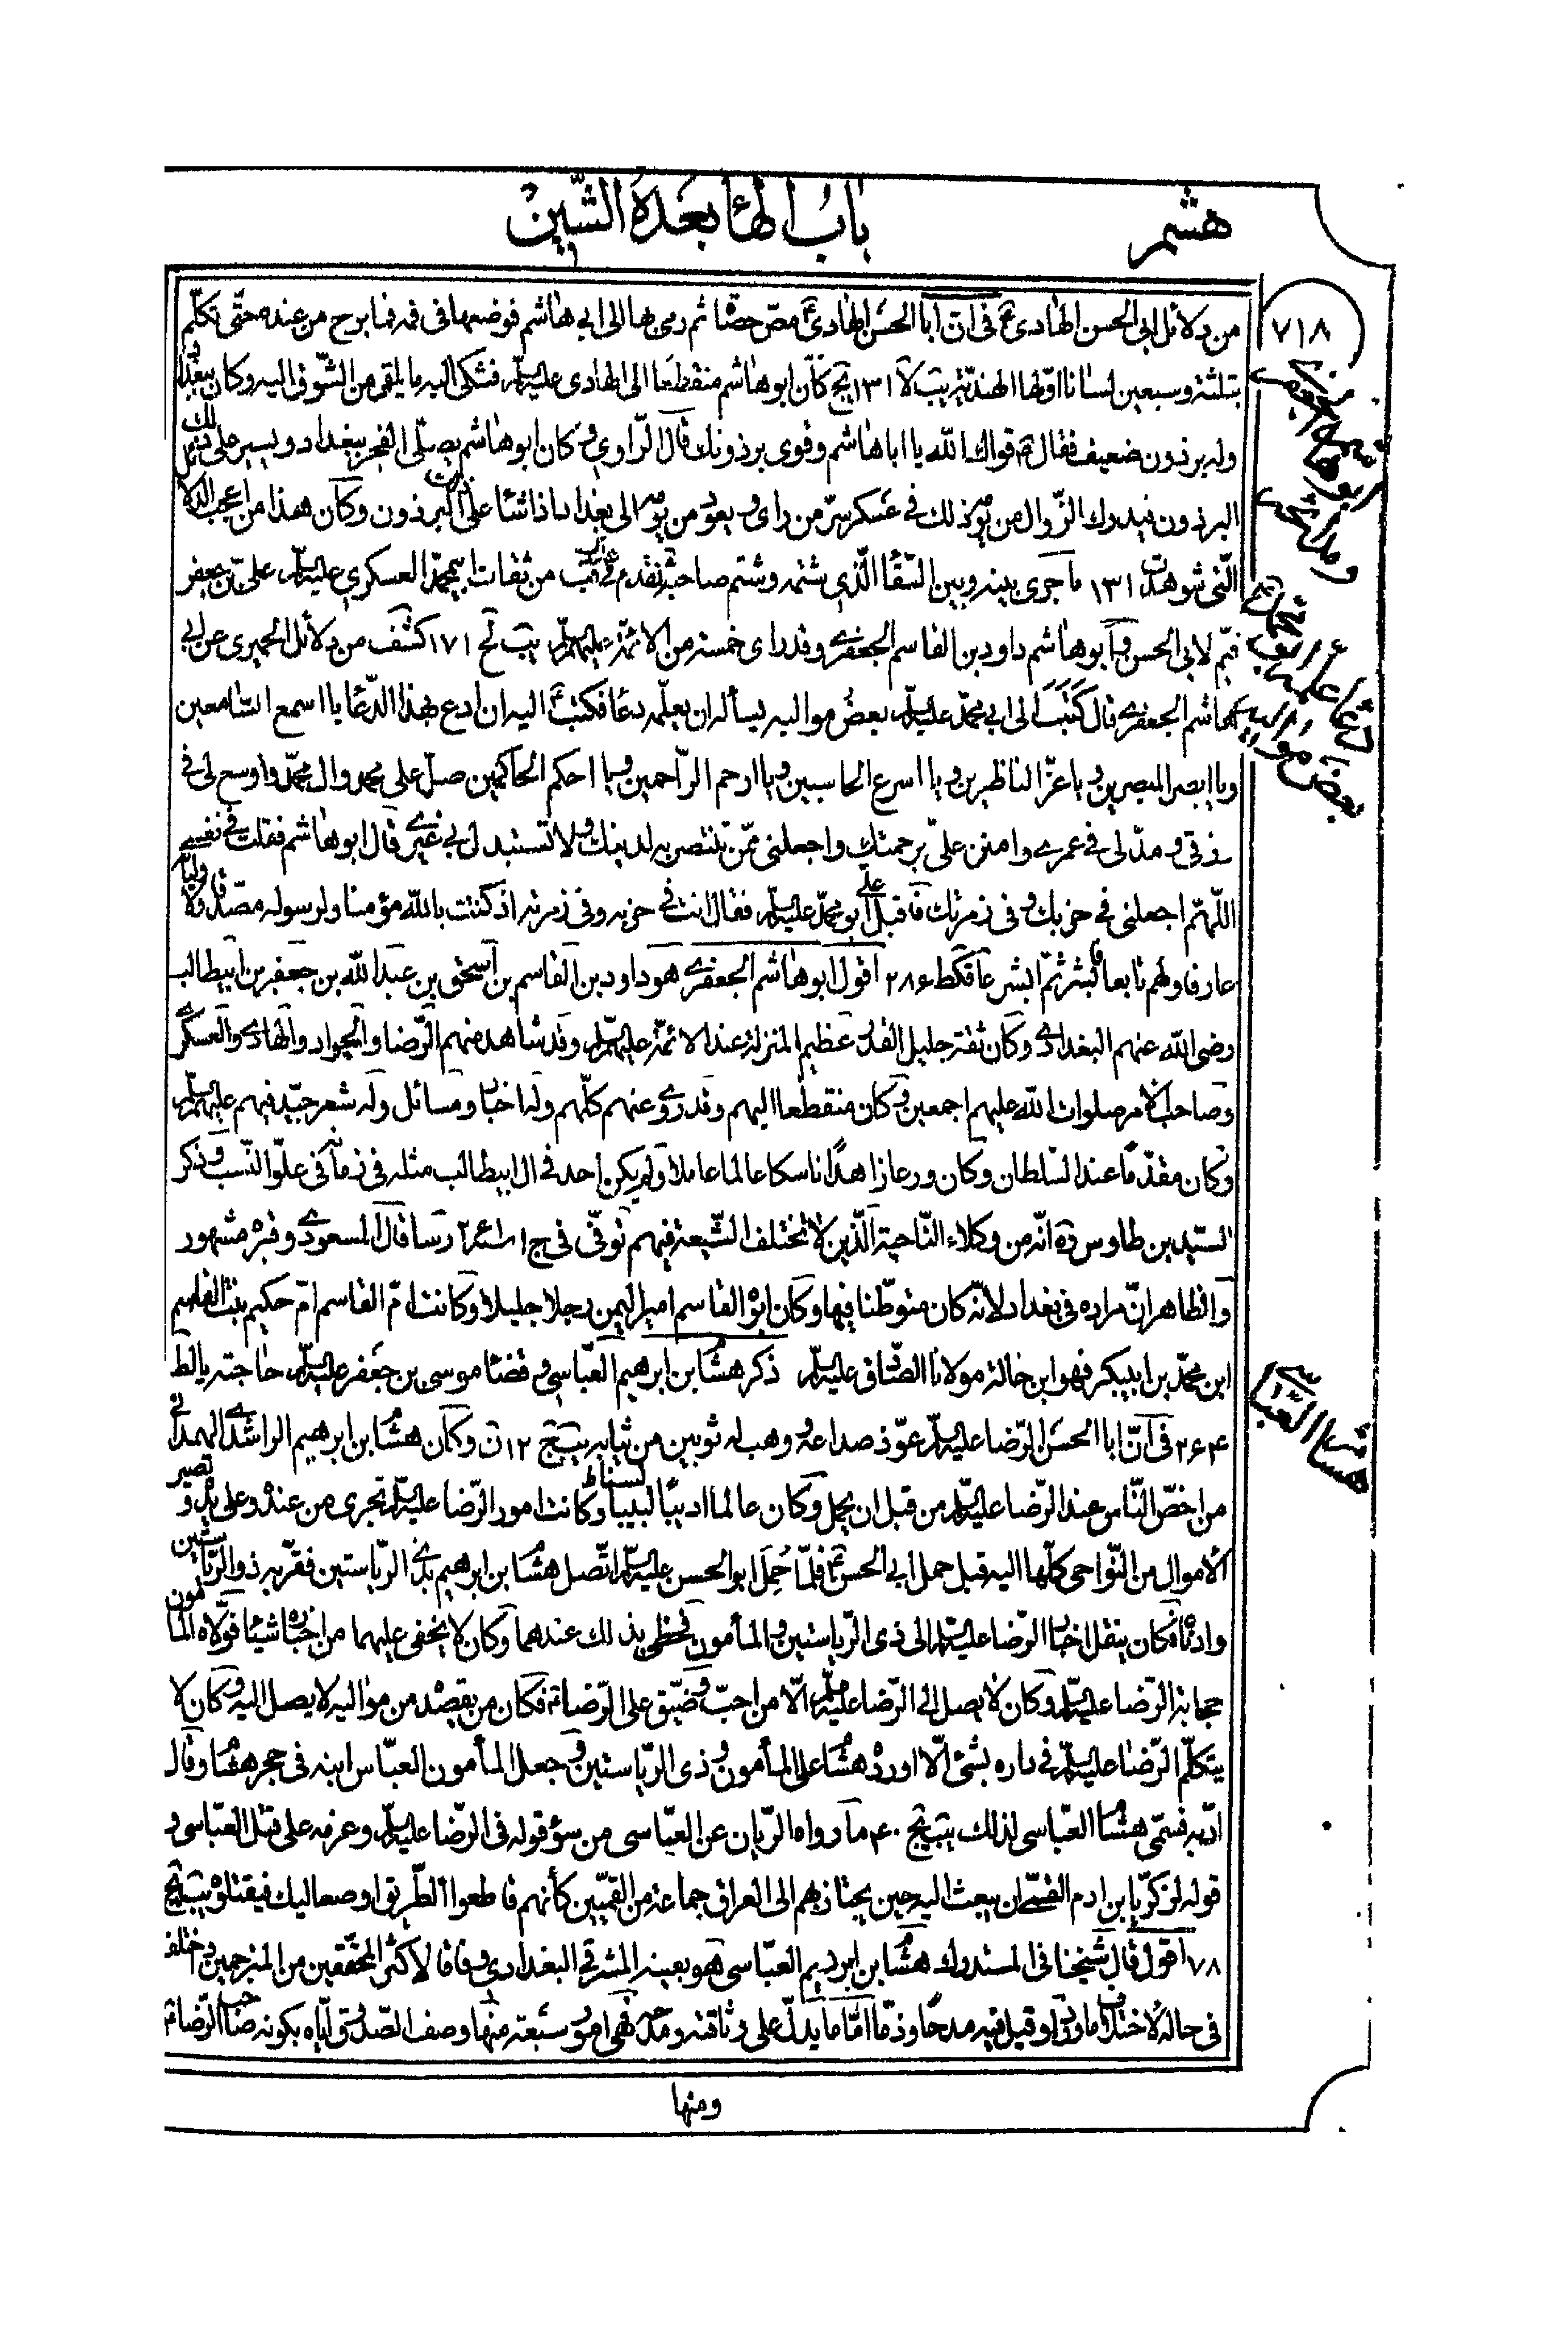 هشم
باب الهاء بعده الشين
٧١٨
من دلائل ابي الحسن الهادى ع فى ان ابا الحسن الهادى ع مصّ حصاة ثم رمى بها الى ابي هاشم فوضعها فى فمه فما برح من عنده حتّى تكلّم
بثلثة وسبعين لسانا اوّلها الهندية يب لا ١٣١ يج كان ابو هاشم منقطعا الى الهادى عليه السلم فشكى اليه ما يلقى من الشوق اليه وكان ببغداد
وله برذون ضعيف فقال ع قواك الله يا ابا هاشم وقوى برذونك قال الراوي وكان ابو هاشم يصلّى الفجر ببغداد ويسير على ذلك
البرذون فيدرك الزوال من يومه ذلك فى عسكر سرّ من راى ويعود من يومه الى بغداد اذا شاء على ذلك البرذون وكان هذا من اعجب الدلائل
الّتى شوهدت ١٣١ ما جرى بينه وبين السقّا الّذي شتمه وشتم صاحبه تقدم فى من ثقات ابيمحمّد العسكرى عليه السلم على بن جعفر
قيّم لابي الحسن وابو هاشم داود بن القاسم الجعفرى وقد راى خمسة من الائمّة عليهم السلم يب لح ١٧١ كشف من دلائل الحميرى عن ابي
هاشم الجعفرى قال كتب الى ابي محمّد عليه السلم بعض مواليه يسأله ان يعلّمه دعاء فكتب اليه ان ادع بهذا الدّعاء يا اسمع السّامعين
ويا ابصر المبصرين ويا عزّ الناظرين ويا اسرع الحاسبين ويا ارحم الرّاحمين ويا احكم الحاكمين صلّ على محمّد وال محمّد واوسع لى فى
رزقى ومدّ لى فى عمرى وامنن علىّ برحمتك واجعلنى ممّن تنتصر به لدينك ولا تستبدل بي غيرى قال ابو هاشم فقلت فى نفسى
اللّهمّ اجعلنى فى حزبك وفى زمرتك فاقبل علىّ ابو محمّد عليه السلم فقال انت فى حزبه وفى زمرته اذ كنت بالله مؤمنا ولرسوله مصدّقا ولاوليائه
عارفا ولهم تابعا فابشر ثمّ ابشر عا قكط ٢٨٦ اقول ابو هاشم الجعفرى هو داود بن القاسم بن اسحق بن عبد الله بن جعفر بن ابيطالب
رضى الله عنهم البغدادى وكان ثقة جليل القدر عظيم المنزلة عند الائمّة عليهم السلم وقد شاهد منهم الرّضا والجواد والهادى والعسكرى
وصاحب الامر صلوات الله عليهم اجمعين وكان منقطعا اليهم وقد روى عنهم كلّهم وله اخبار ومسائل وله شعر جيّد فيهم عليهم السلم
وكان مقدّما عند السلطان وكان ورعا زاهدا ناسكا عالما عاملا ولم يكن احد فى ال ابيطالب مثله فى زمانه فى علوّ النّسب وذكر
السّيد بن طاوس ره انّه من وكلاء النّاحية الّذين لا تختلف الشّيعة فيهم توفّى فى ج ١ قال المسعودى وقبره مشهور
والظاهر انّ مراده فى بغداد لانّه كان متوطّنا فيها وكان ابوه القاسم امير اليمن رجلا جليلا وكانت امّ القاسم امّ حكيم بنت القاسم
ابن محمّد بن ابيبكر فهو ابن خالة مولانا الصّادق عليه السلم ذكر هشام بن ابرهيم العبّاسي وقضاء موسى بن جعفر عليه السلم حاجته يا لط
٢٦٤ فى انّ ابا الحسن الرّضا عليه السلم عوّذ صداعه ووهب له ثوبين من ثيابه يب يج ١٢ ن وكان هشام بن ابرهيم الراشدى الهمدانى
من اخصّ النّاس عند الرّضا عليه السلم من قبل ان يحمل وكان عالما اديبا لبيبا وكانت امور الرّضا عليه السلم تجرى من عنده وعلى يده وتصير
الاموال من النّواحى كلّها اليه قبل حمل ابي الحسن ع فلمّا حمل ابو الحسن عليه السلم اتّصل هشام بن ابرهيم بذى الرّياستين فقرّبه ذو الرّياستين
وادناه فكان ينقل اخبار الرّضا عليه السلم الى ذى الرّياستين والمأمون فحظى بذلك عندهما وكان لا يخفى عليهما من اخباره شيئا فولّاه المأمون
حجابة الرّضا عليه السلم وكان لا يصل الى الرّضا عليه السلم الّا من احبّ وضيّق على الرّضا ع فكان من يقصده من مواليه لا يصل اليه وكان لا
يتكلّم الرّضا عليه السلم فى داره بشئ الّا اورده هشام على المأمون وذى الرّياستين وجعل المأمون العبّاس ابنه فى حجر هشام وقال
ادّبه فسمّى هشام العبّاسى لذلك يب يج ٤٠ ما رواه الرّيان عن العبّاسى من سوء قوله فى الرّضا عليه السلم وعزمه على قتل العبّاسى و
قوله لزكريّا بن ادم القمّى ان يبعث اليه حين يجتاز بهم الى العراق جماعة من القمّيّين كأنّهم قاطعوا الطّريق او صعاليك فيقتلوه يب يج
٧٨ اقول قال شيخنا فى المستدرك هشام بن ابرهيم العبّاسى هو بعينه المشرقى البغدادى وفاقا لاكثر المحقّقين من المترجمين واختلف
فى حاله لاختلاف ما ورد او قيل فيه مدحا وذمّا امّا ما يدلّ على وثاقته ومدحه فهى امور سبعة منها وصف الصّدوق ايّاه بكونه صاحب الرّضا ع
ومنها
هشام العبّاسى